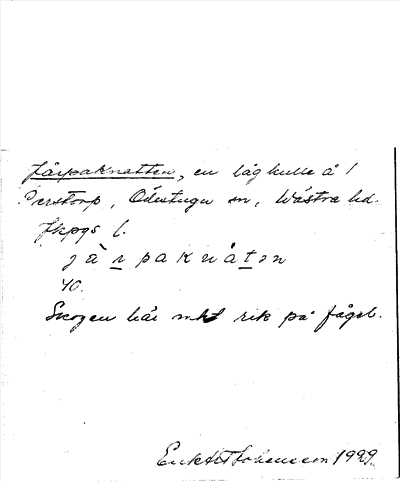 Järpaknatten, en låg kulle å /
Perstorp, Ödestugu sn, Västra hd.
Jkpgs l.
j ä r p a k n å t ə n
40.
Skogen här mkt rik på fågel.
Johansson 1929.